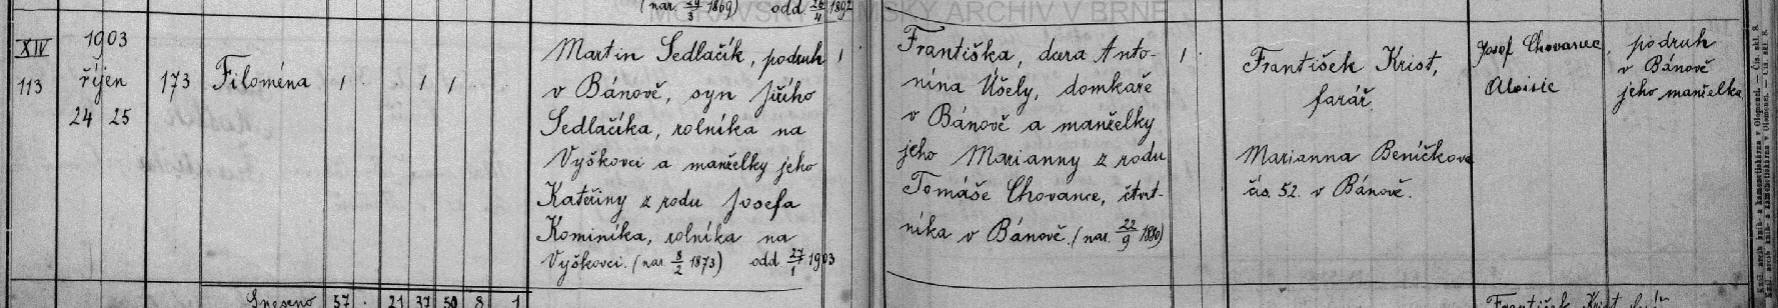 (nar. 29/3 1869) odd 26/4 1892
MORAVSKÝ ZEMSKÝ ARCHIV V BRNĚ
XIV
113
1903
říjen
24 25
173
Filoména
1 1 1
Martin Sedlačík, podruh 1
v Bánově, syn Jiřího
Sedlačíka, rolníka na
Vyškovci a manželky jeho
Kateřiny z rodu Josefa
Kominíka, rolníka na
Vyškovci. (nar. 8/2 1873) odd 27/1 1903
Františka, dcera Anto- 1
nína Úšely, domkaře
v Bánově a manželky
jeho Marianny z rodu
Tomáše Chovance, čtvrt-
níka v Bánově. (nar. 22/9 1880)
František Krist,
farář.
Marianna Beníčkova
čís. 52. v Bánově.
Josef Chovanec,
Aloisie
podruh
v Bánově
jeho manželka
Sneseno 57 . 21 37 50 8 1
František Krist